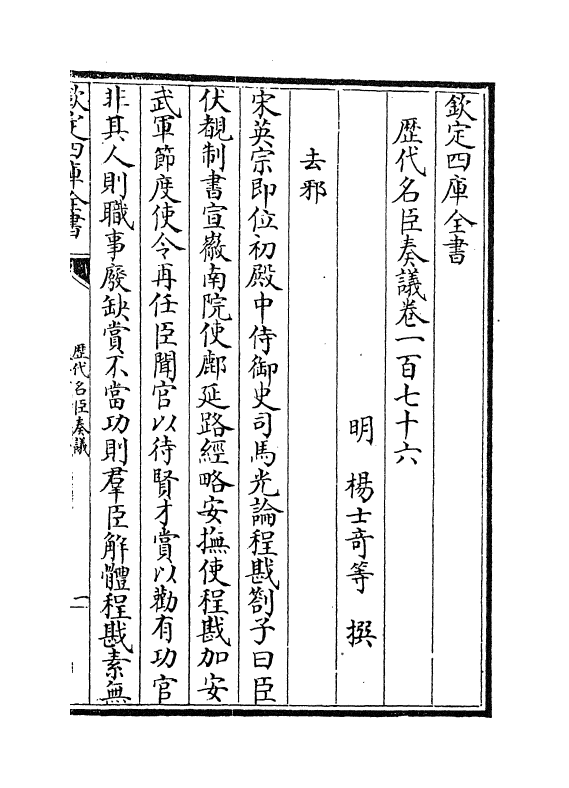 欽定四庫全書
歴代名臣奏議卷一百七十六
明 楊士奇等 撰
去邪
宋英宗即位初殿中侍御史司馬光論程戡劄子曰臣
伏覩制書宣徽南院使鄜延路經略安撫使程戡加安
武軍節度使令再任臣聞官以待賢才賞以勸有功官
非其人則職事廢缺賞不當功則羣臣解體程戡素無
欽定四庫全書
歴代名臣奏議